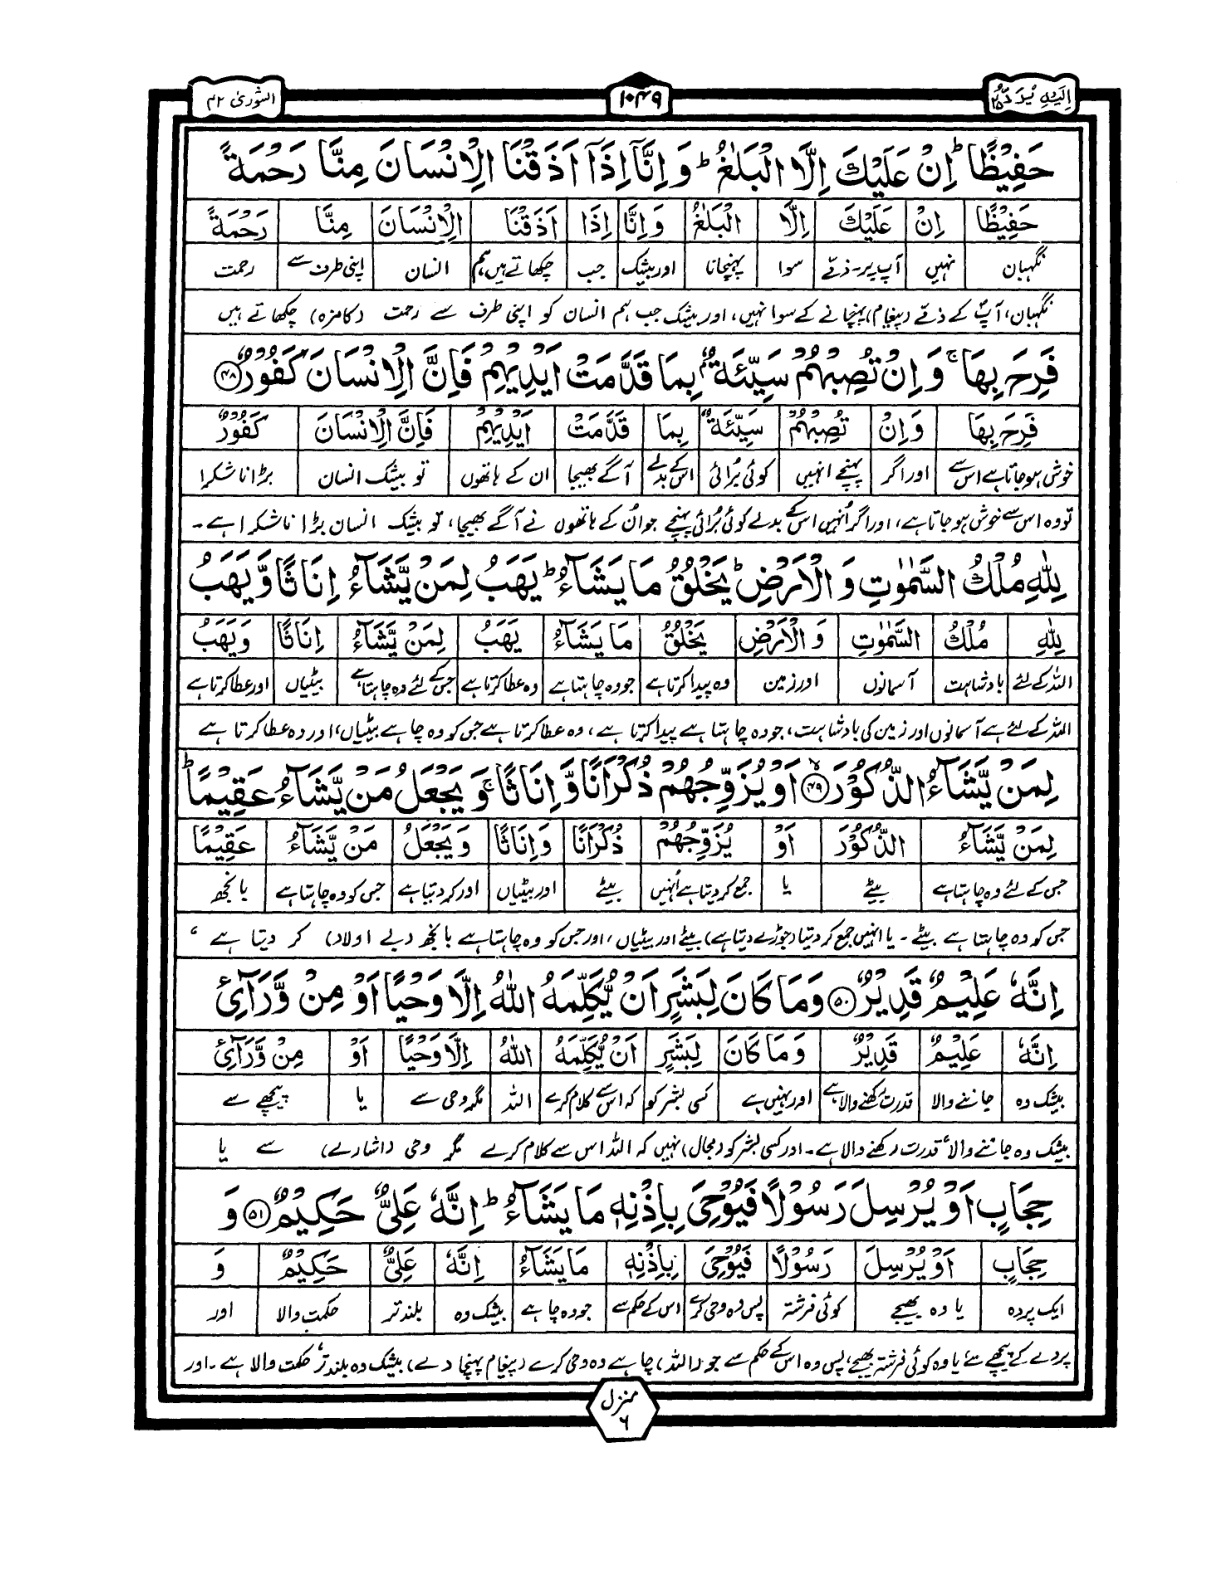 اِلَیۡهِ یُرَدُّ ۲۵
۱۰۴۹
الشوریٰ ۴۲
حَفِیۡظًا ؕ اِنۡ عَلَیۡكَ اِلَّا الۡبَلٰغُ ؕ وَ اِنَّاۤ اِذَاۤ اَذَقۡنَا الۡاِنۡسَانَ مِنَّا رَحۡمَةً
حَفِیۡظًا اِنۡ عَلَیۡكَ اِلَّا الۡبَلٰغُ وَاِنَّا اِذَا اَذَقۡنَا الۡاِنۡسَانَ مِنَّا رَحۡمَةً
نگہبان نہیں آپ پر۔ذمے سوا پہنچانا اور بیشک جب چکھاتے ہیں ہم انسان اپنی طرف سے رحمت
نگہبان، آپؐ کے ذمے (پیغام) پہنچانے کے سوا نہیں، اور بیشک جب ہم انسان کو اپنی طرف سے رحمت (کا مزہ) چکھاتے ہیں
فَرِحَ بِهَا ۚ وَ اِنۡ تُصِبۡهُمۡ سَیِّئَةٌۢ بِمَا قَدَّمَتۡ اَیۡدِیۡهِمۡ فَاِنَّ الۡاِنۡسَانَ كَفُوۡرٌ ﴿۴۸﴾
فَرِحَ بِهَا وَاِنۡ تُصِبۡهُمۡ سَیِّئَةٌۢ بِمَا قَدَّمَتۡ اَیۡدِیۡهِمۡ فَاِنَّ الۡاِنۡسَانَ كَفُوۡرٌ
خوش ہو جاتا ہے اس سے اور اگر پہنچے انہیں کوئی برائی اس کے بدلے آگے بھیجا ان کے ہاتھوں تو بیشک انسان بڑا ناشکرا
تو وہ اس سے خوش ہو جاتا ہے، اور اگر اُنہیں اس کے بدلے کوئی بُرائی پہنچے جو اُن کے ہاتھوں نے آگے بھیجا، تو بیشک انسان بڑا ناشکرا ہے۔
لِلّٰهِ مُلۡكُ السَّمٰوٰتِ وَ الۡاَرۡضِ ؕ یَخۡلُقُ مَا یَشَآءُ ؕ یَهَبُ لِمَنۡ یَّشَآءُ اِنَاثًا وَّ یَهَبُ
لِلّٰهِ مُلۡكُ السَّمٰوٰتِ وَ الۡاَرۡضِ یَخۡلُقُ مَا یَشَآءُ یَهَبُ لِمَنۡ یَّشَآءُ اِنَاثًا وَیَهَبُ
اللہ کے لئے بادشاہت آسمانوں اور زمین وہ پیدا کرتا ہے جو وہ چاہتا ہے وہ عطا کرتا ہے جس کے لئے وہ چاہتا ہے بیٹیاں اور عطا کرتا ہے
اللہ کے لئے ہے آسمانوں اور زمین کی بادشاہت، جو وہ چاہتا ہے پیدا کرتا ہے، وہ عطا کرتا ہے جس کو وہ چاہے بیٹیاں، اور وہ عطا کرتا ہے
لِمَنۡ یَّشَآءُ الذُّكُوۡرَ ﴿۴۹﴾ اَوۡ یُزَوِّجُهُمۡ ذُكۡرَانًا وَّ اِنَاثًا ۚ وَ یَجۡعَلُ مَنۡ یَّشَآءُ عَقِیۡمًا ؕ
لِمَنۡ یَّشَآءُ الذُّكُوۡرَ اَوۡ یُزَوِّجُهُمۡ ذُكۡرَانًا وَاِنَاثًا وَیَجۡعَلُ مَنۡ یَّشَآءُ عَقِیۡمًا
جس کے لئے وہ چاہتا ہے بیٹے یا جمع کر دیتا ہے اُنہیں بیٹے اور بیٹیاں اور کر دیتا ہے جس کو وہ چاہتا ہے بانجھ
جس کو وہ چاہتا ہے بیٹے۔ یا انہیں جمع کر دیتا (جوڑے دیتا ہے) بیٹے اور بیٹیاں، اور جس کو وہ چاہتا ہے بانجھ (بے اولاد) کر دیتا ہے،
اِنَّهٗ عَلِیۡمٌ قَدِیۡرٌ ﴿۵۰﴾ وَ مَا كَانَ لِبَشَرٍ اَنۡ یُّكَلِّمَهُ اللّٰهُ اِلَّا وَحۡیًا اَوۡ مِنۡ وَّرَآئِ
اِنَّهٗ عَلِیۡمٌ قَدِیۡرٌ وَمَا كَانَ لِبَشَرٍ اَنۡ یُّكَلِّمَهُ اللّٰهُ اِلَّا وَحۡیًا اَوۡ مِنۡ وَّرَآئِ
بیشک وہ جاننے والا قدرت رکھنے والا ہے اور نہیں ہے کسی بشر کو کہ اس سے کلام کرے اللہ مگر وحی سے یا پیچھے سے
بیشک وہ جاننے والا قدرت رکھنے والا ہے۔ اور کسی بشر کو (مجال) نہیں کہ اللہ اس سے کلام کرے مگر وحی (اشارے) سے یا
حِجَابٍ اَوۡ یُرۡسِلَ رَسُوۡلًا فَیُوۡحِیَ بِاِذۡنِهٖ مَا یَشَآءُ ؕ اِنَّهٗ عَلِیٌّ حَكِیۡمٌ ﴿۵۱﴾ وَ
حِجَابٍ اَوۡ یُرۡسِلَ رَسُوۡلًا فَیُوۡحِیَ بِاِذۡنِهٖ مَا یَشَآءُ اِنَّهٗ عَلِیٌّ حَكِیۡمٌ وَ
ایک پردہ یا وہ بھیجے کوئی فرشتہ پس وہ وحی کرے اس کے حکم سے جو وہ چاہے بیشک وہ بلند تر حکمت والا اور
پردے کے پیچھے سے، یا وہ کوئی فرشتہ بھیجے، پس وہ اس کے حکم سے جو (اللہ) چاہے وہ وحی کرے (پیغام پہنچا دے) بیشک وہ بلند تر، حکمت والا ہے۔ اور
منزل
۶